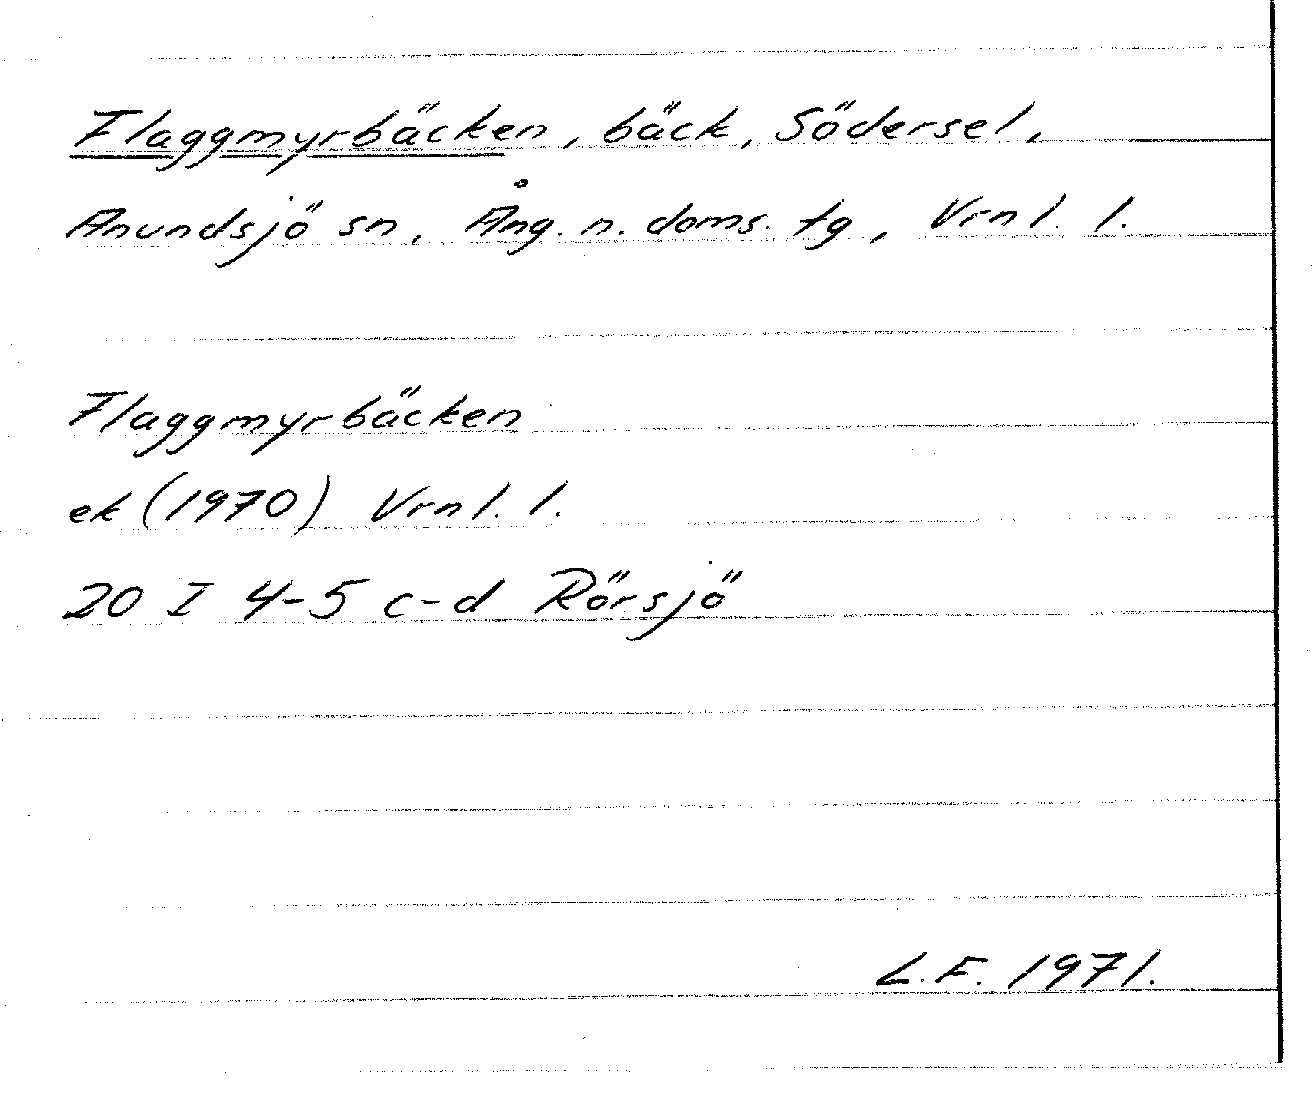 Flaggmyrbäcken, bäck, Södersel,
Anundsjö sn, Ång. n. doms. tg, Vrnl. l.
Flaggmyrbäcken
ek (1970) Vrnl. l.
20 I 4-5 c-d Rörsjö
L.F. 1971.